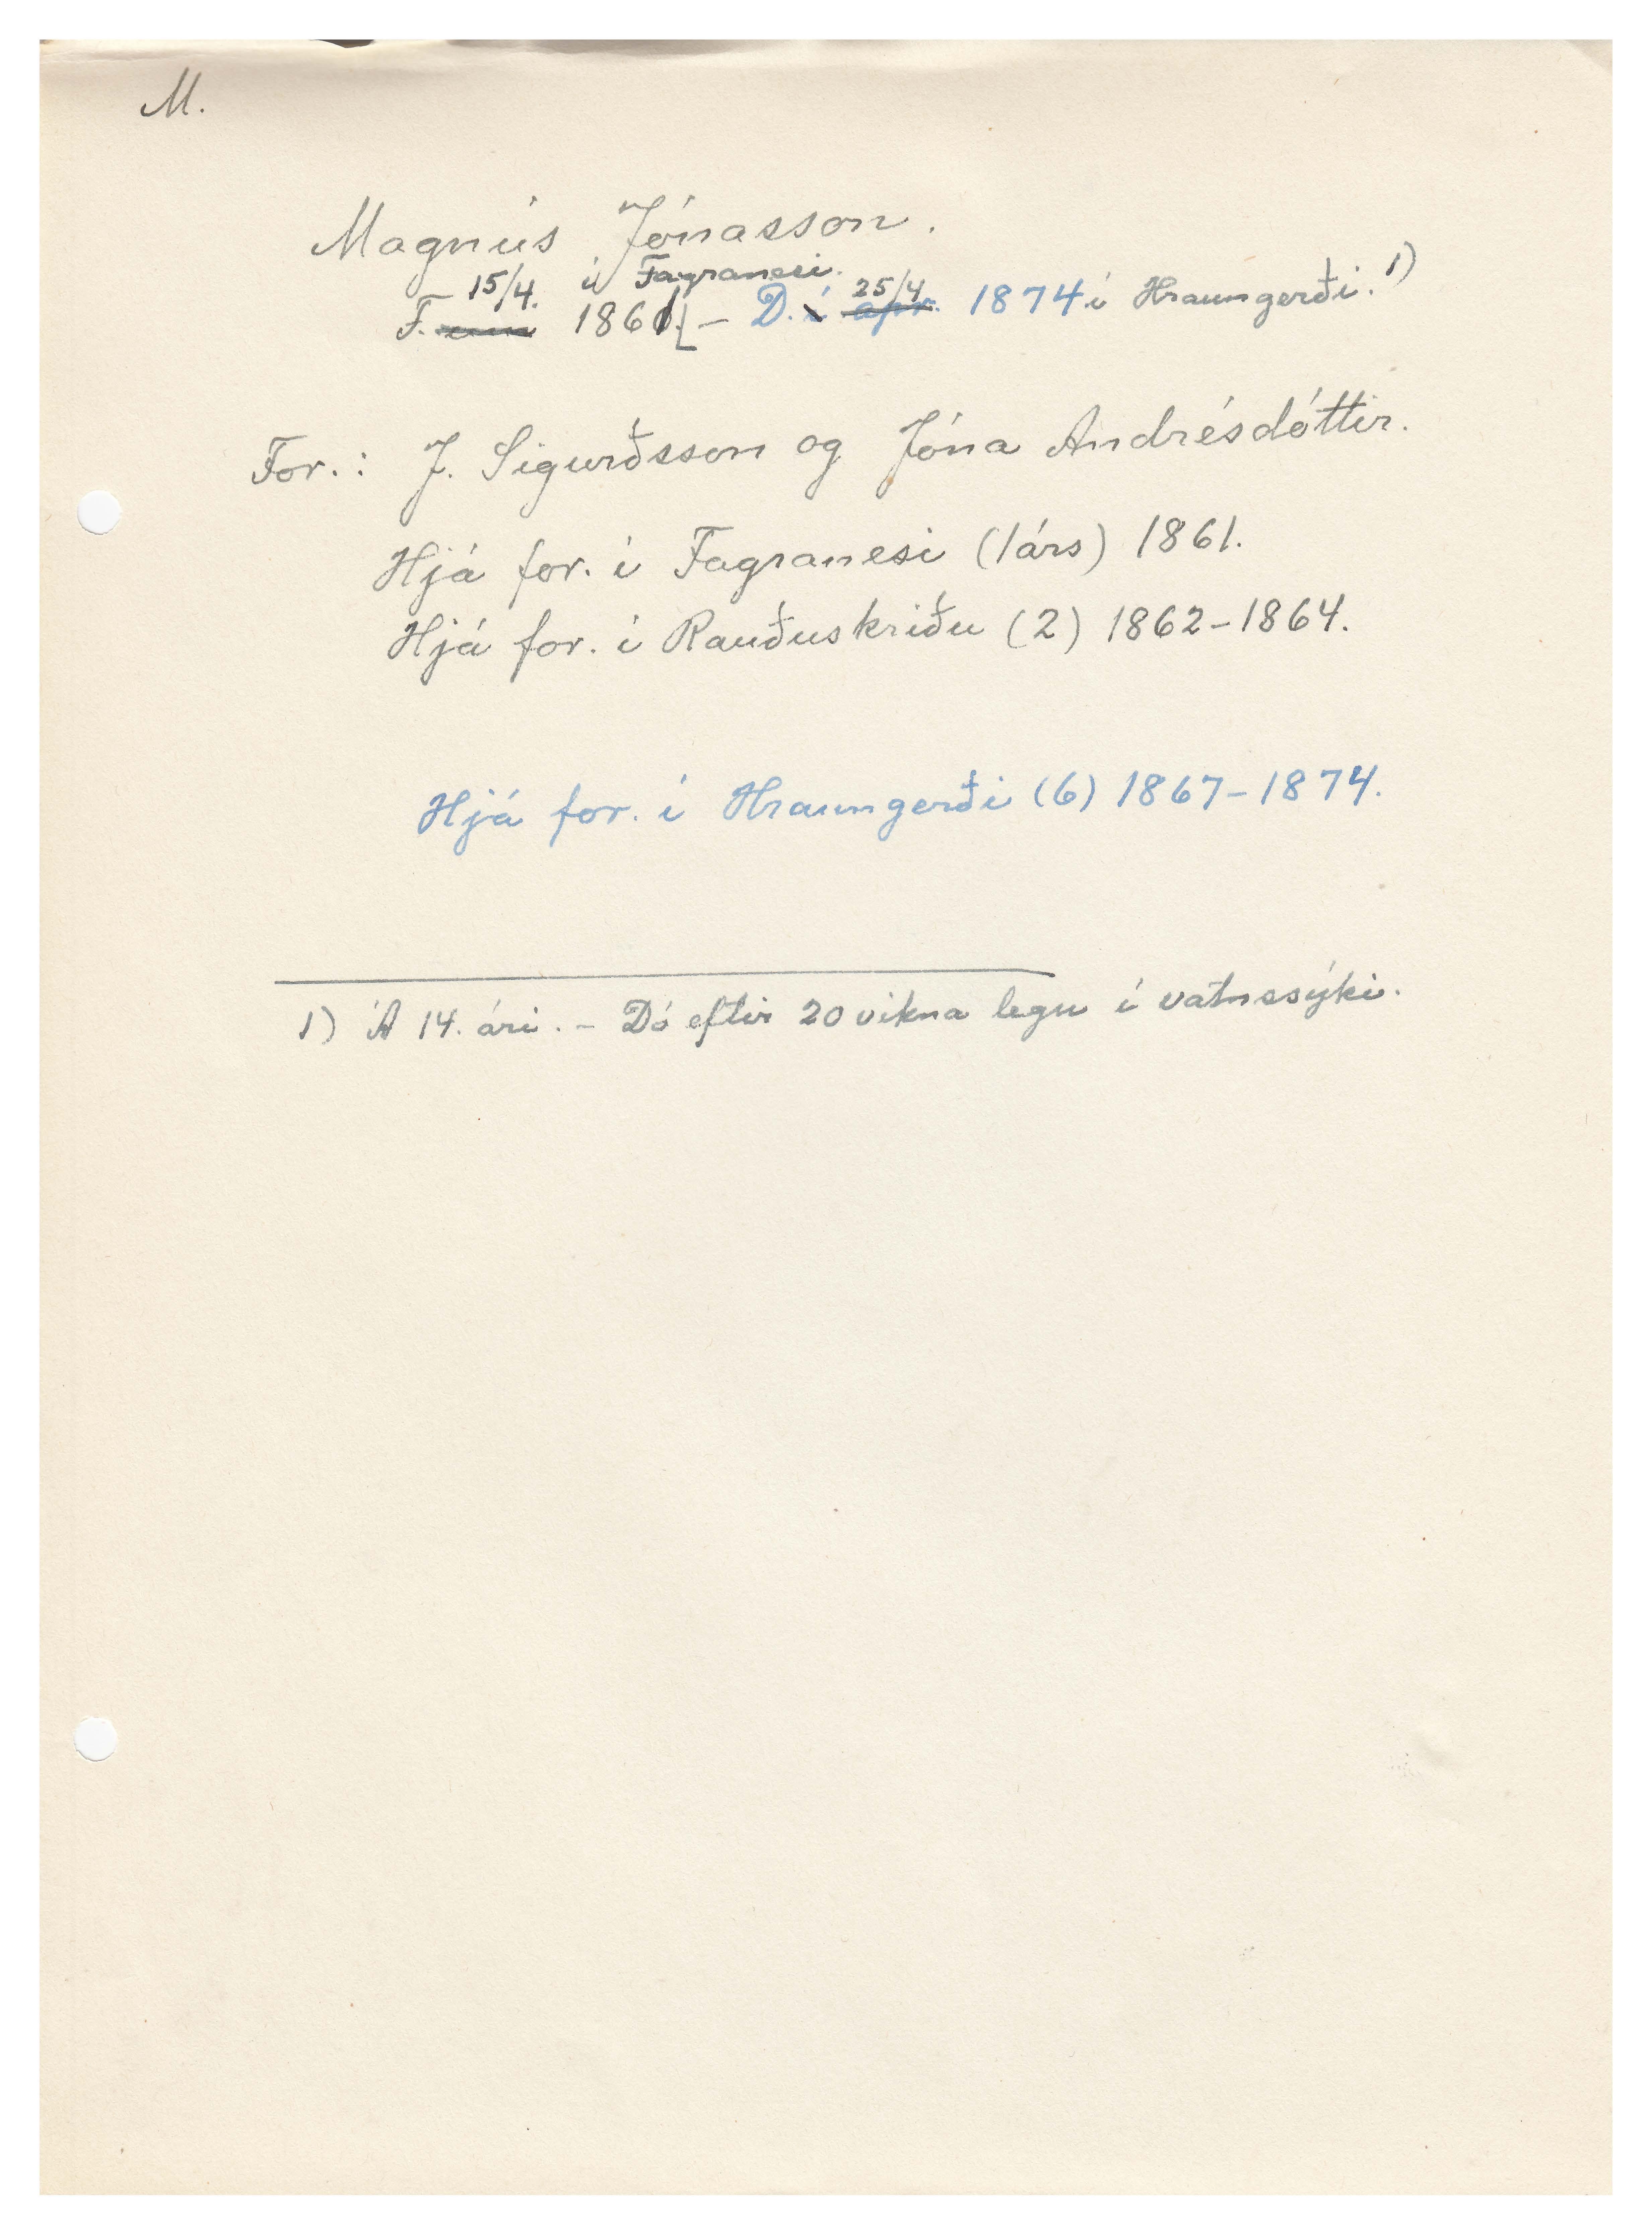 M.
Magnús Jónasson.
15/4. í Fagranesi. 25/4
F. um 1861. – D. í apr. 1874 í Hraungerði. 1)
For.: J. Sigurðsson og Jóna Andrésdóttir.
Hjá for. í Fagranesi (1árs) 1861.
Hjá for. í Rauðuskriðu (2) 1862–1864.
Hjá for. í Hraungerði (6) 1867–1874.
1) Á 14. ári. – Dó eftir 20 vikna legu í vatnssýki.